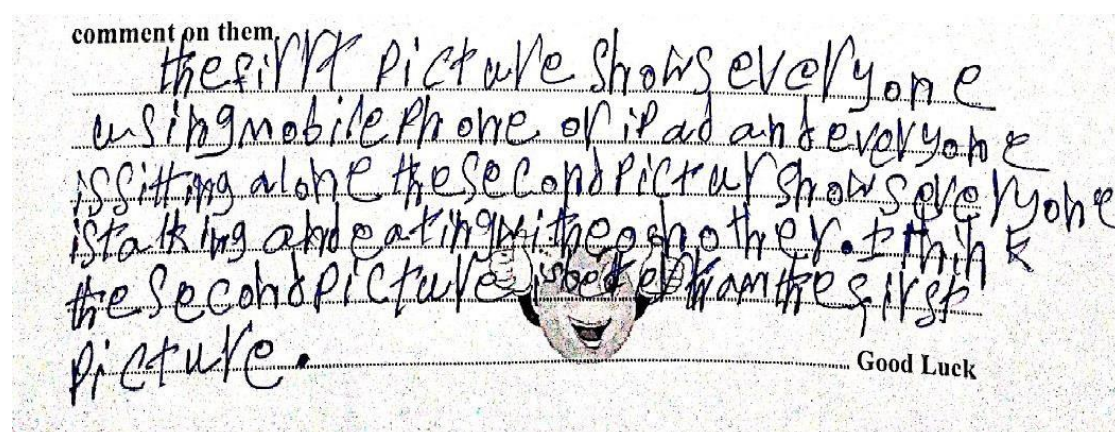 comment on them.
the firrt picture shows everyone
using mobile phone or ipad and everyone
is sitting alone the second pictur shows everyone
is talking and eating with eosh other. I think
the second picture is beter tham the first
picture.
Good Luck